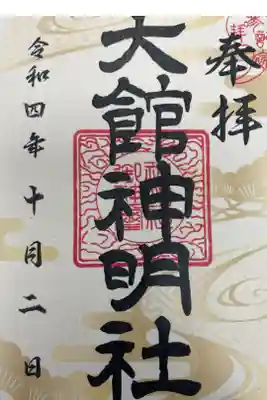 奉拝
大館神明社
令和四年十月二日